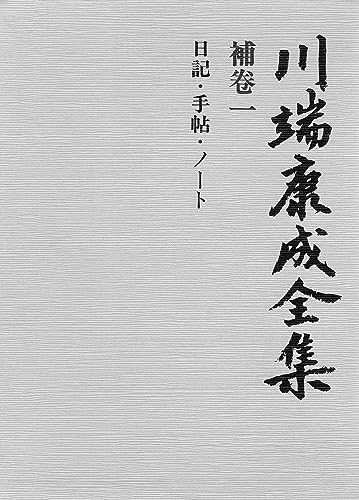 川端康成全集
補巻一
日記・手帖・ノート